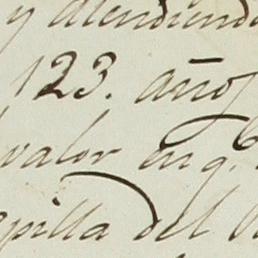 y atendiendo
123. años
valor en q.
pilla del